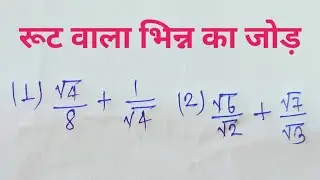 रूट वाला भिन्न का जोड़
(1) √4/8 + 1/√4 (2) √6/√2 + √7/√3